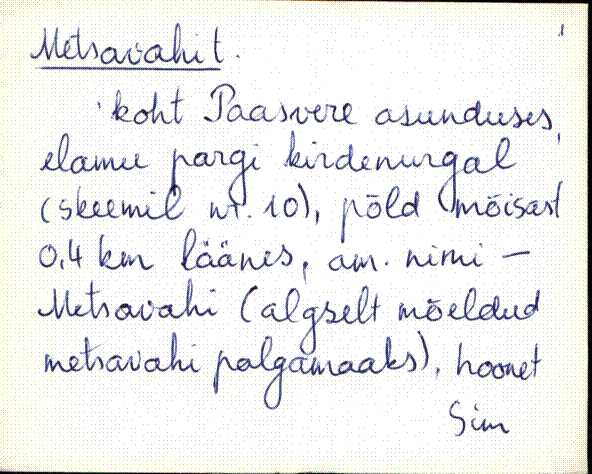 Metsavahi t.
koht Paasvere asunduses,
elamu pargi kirdenurgal
(skeemil nr. 10), põld mõisast
0,4 km läänes, am. nimi –
Metsavahi (algselt mõeldud
metsavahi palgamaaks), hoonet
Sim